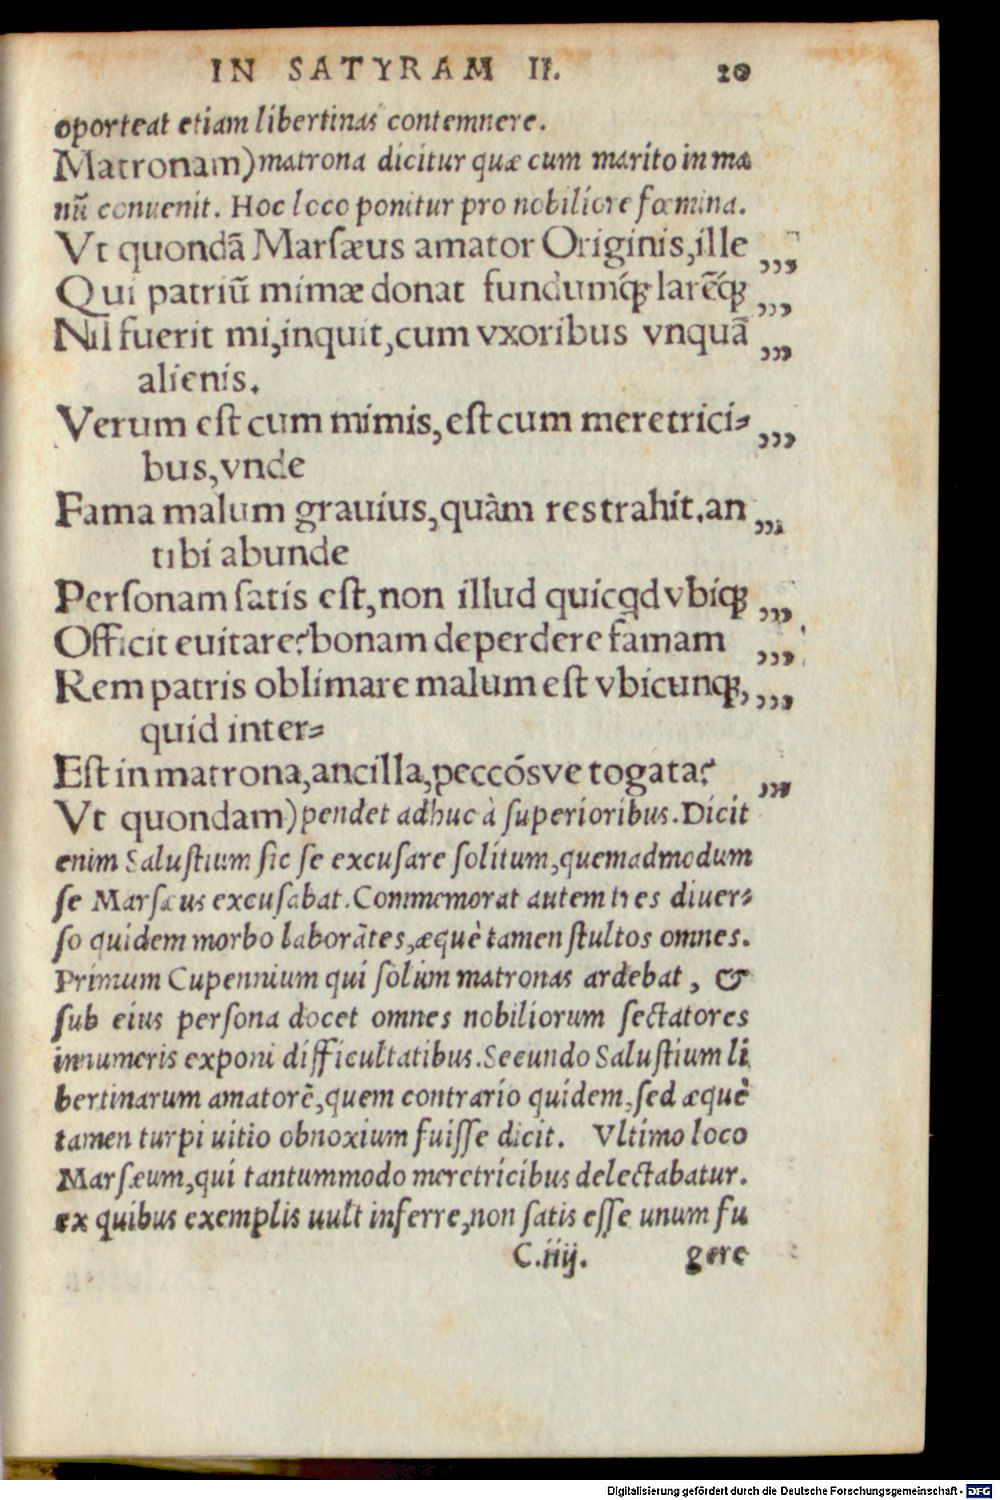 IN SATYRAM II. 20
oporteat etiam libertinas contemnere.
Matronam) matrona dicitur quæ cum marito in ma
nũ conuenit. Hoc loco ponitur pro nobiliore fœmina.
Vt quondã Marsæus amator Originis, ille ,,,
Qui patriũ mimæ donat fundumq́ꝫ larẽq́ꝫ ,,,
Nil fuerit mi, inquit, cum vxoribus vnquã ,,,
alienis.
Verum est cum mimis, est cum meretrici= ,,,
bus, vnde
Fama malum grauius, quàm res trahit. an ,,,
tibi abunde
Personam satis est, non illud quicqd vbiqꝫ ,,,
Officit euitare? bonam deperdere famam ,,,
Rem patris oblimare malum est vbicunqꝫ, ,,,
quid inter=
Est in matrona, ancilla, peccósve togata? ,,,
Vt quondam) pendet adhuc à superioribus. Dicit
enim Salustium sic se excusare solitum, quemadmodum
se Marsæus excusabat. Commemorat autem tres diuer=
so quidem morbo laborãtes, æquè tamen stultos omnes.
Primum Cupennium qui solùm matronas ardebat, &
sub eius persona docet omnes nobiliorum sectatores
innumeris exponi difficultatibus. Secundo Salustium li
bertinarum amatorẽ, quem contrario quidem, sed æquè
tamen turpi uitio obnoxium fuisse dicit. Vltimo loco
Marsæum, qui tantummodo meretricibus delectabatur.
ex quibus exemplis uult inferre, non satis esse unum fu
C.iiij. gere
Digitalisierung gefördert durch die Deutsche Forschungsgemeinschaft - DFG